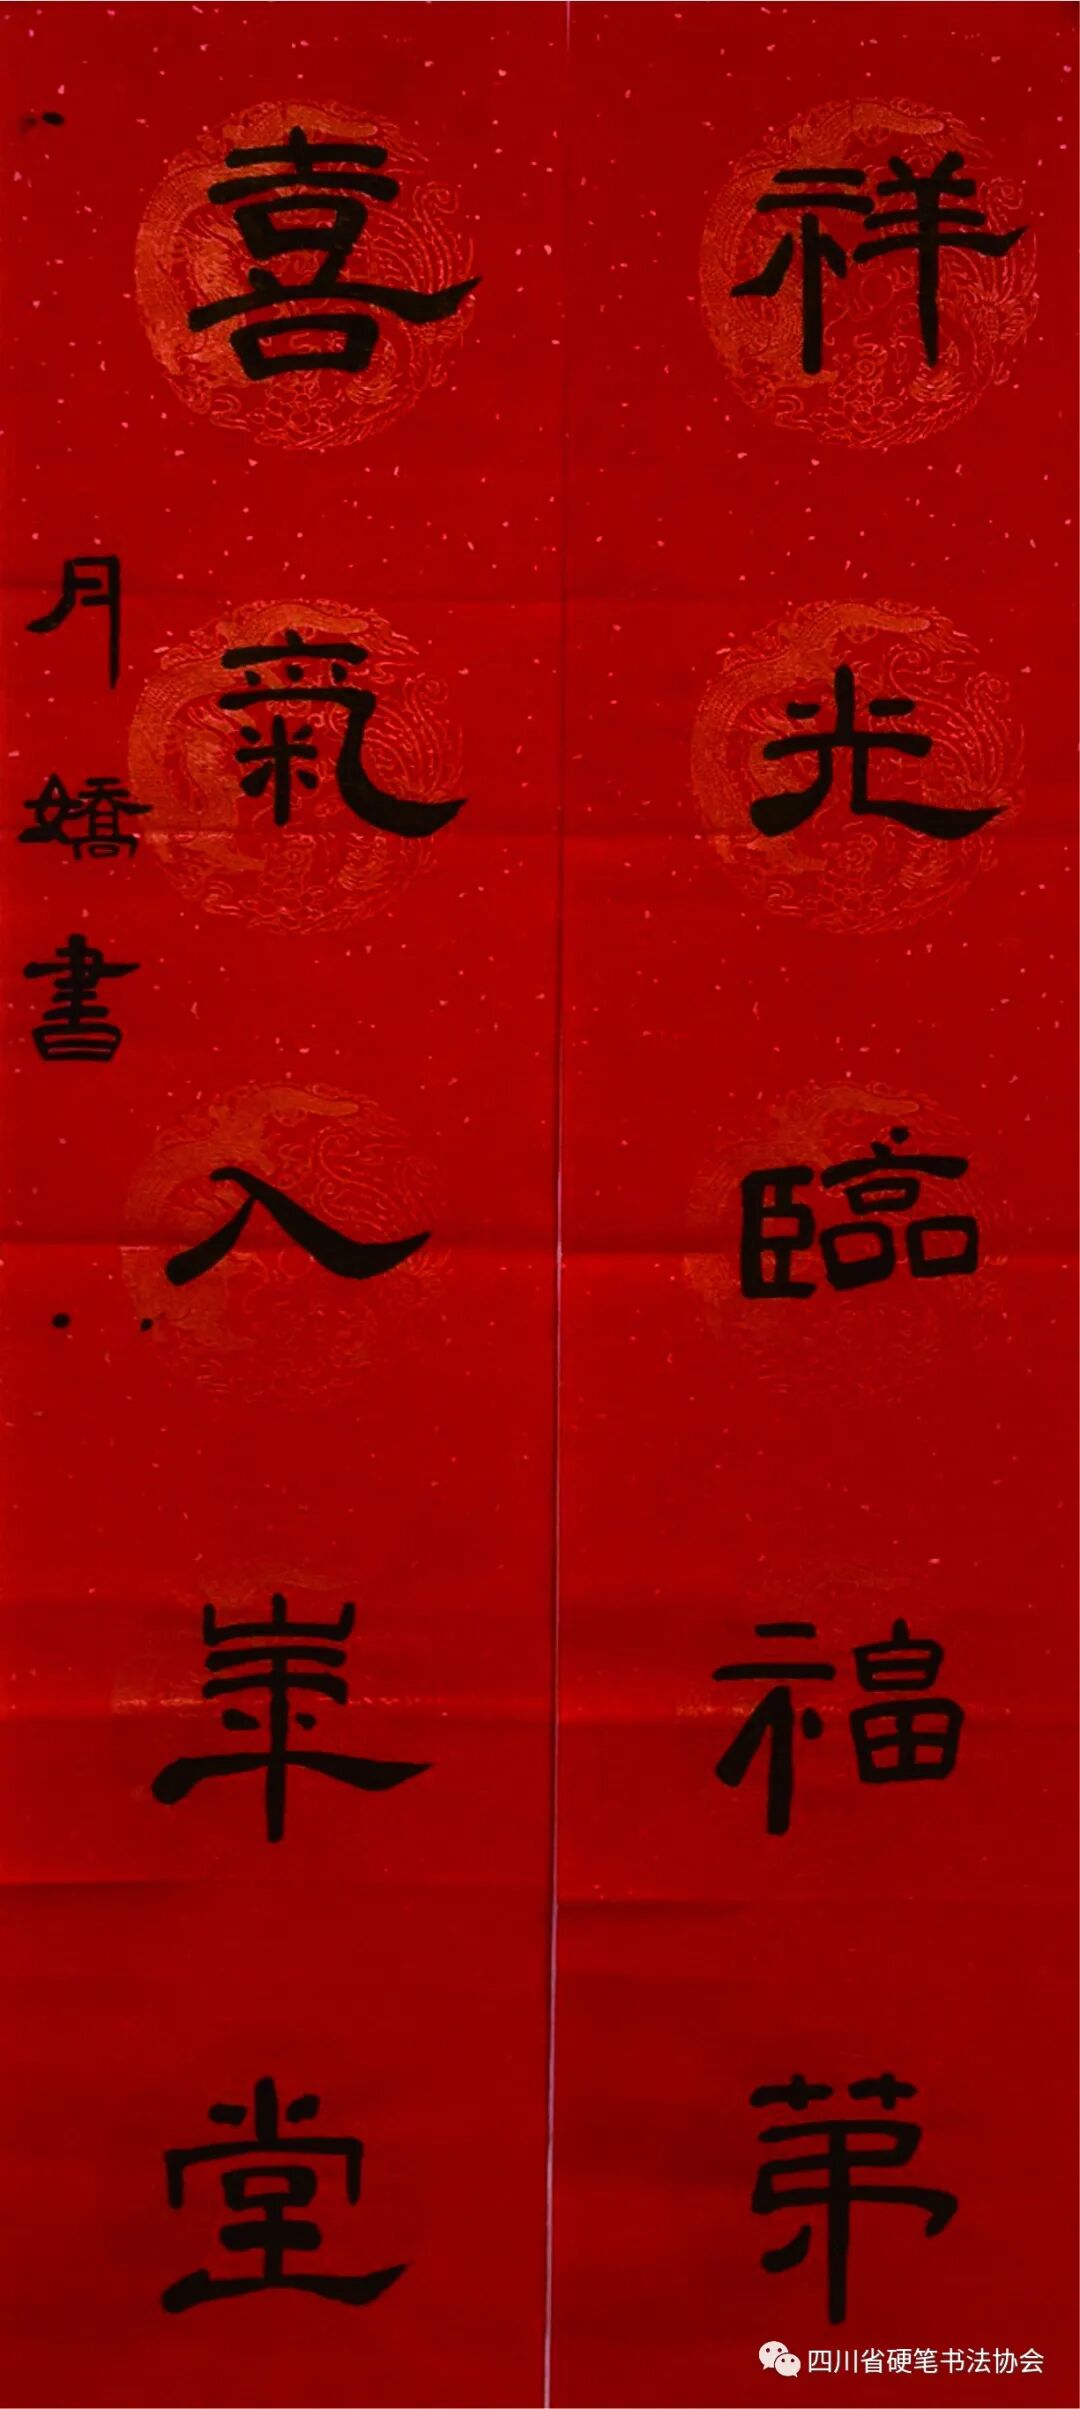 祥光臨福第
喜氣入華堂
月嬌書
四川省硬笔书法协会